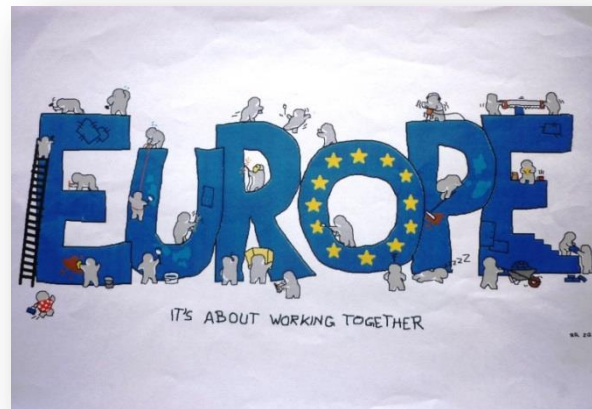 EUROPE
IT'S ABOUT WORKING TOGETHER